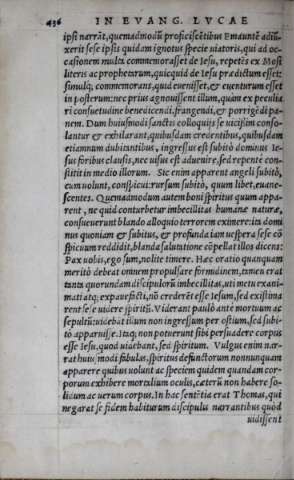 436 IN EVANG. LVCAE
ipsi narrāt, quemadmodū proficiscētibus Emauntē adiū⸗
xerit sese ipsis quidam ignotus specie uiatoris, qui ad oc⸗
casionem multa commemorasset de Iesu, repetēs ex Mosi
literis ac prophetarum, quicquid de Iesu prædictum esset:
simulq; commemorans, quid euenisset, & euenturum esset
in posterum: nec prius agnouissent illum, quàm ex peculia
ri consuetudine benedicendi, frangendi, & porrigēdi pa⸗
nem. Dum huiusmodi sanctis colloquijs se uicissim conso⸗
lantur & exhilarant, quibusdam credentibus, quibusdam
etiamnum dubitantibus, ingressus est subitò dominus Ie⸗
sus foribus clausis, nec uisus est aduenire, sed repentè con⸗
stitit in medio illorum. Sic enim apparent angeli subitò,
cum uolunt, conspicui: rursum subitò, quum libet, euane⸗
scentes. Quemadmodum autem boni spiritus quum appa⸗
rent, ne quid conturbetur imbecillitas humanæ naturæ,
consueuerunt blando alloquio terrorem eximere: ita domi
nus quoniam & subitus, & profunda iam uespera sese cō
spicuum reddidit, blanda salutatione cōpellat illos dicens:
Pax uobis, ego sum, nolite timere. Hæc oratio quanquam
meritò debeat omnem propulsare formidinem, tamen erat
tanta quorundam discipulorū imbecillitas, uti metu exani⸗
mati atq; expauefacti, nō crederēt esse Iesum, sed existima
rent se se uidere spiritū. Viderant paulò antè mortuum ac
sepultū: uidebāt illum non ingressum per ostium, sed subi⸗
tò apparuisse. Itaq; non poterunt sibi persuadere corpus
esse Iesu, quod uidebant, sed spiritum. Vulgus enim nar⸗
rat huiusmodi fabulas, spiritus defunctorum nonnunquam
apparere quibus uolunt ac speciem quidem quandam cor⸗
porum exhibere mortalium oculis, cæterū non habere so⸗
lidum ac uerum corpus. In hac sentētia erat Thomas, qui
negarat se fidem habiturum discipulis narrantibus quòd
uidissent